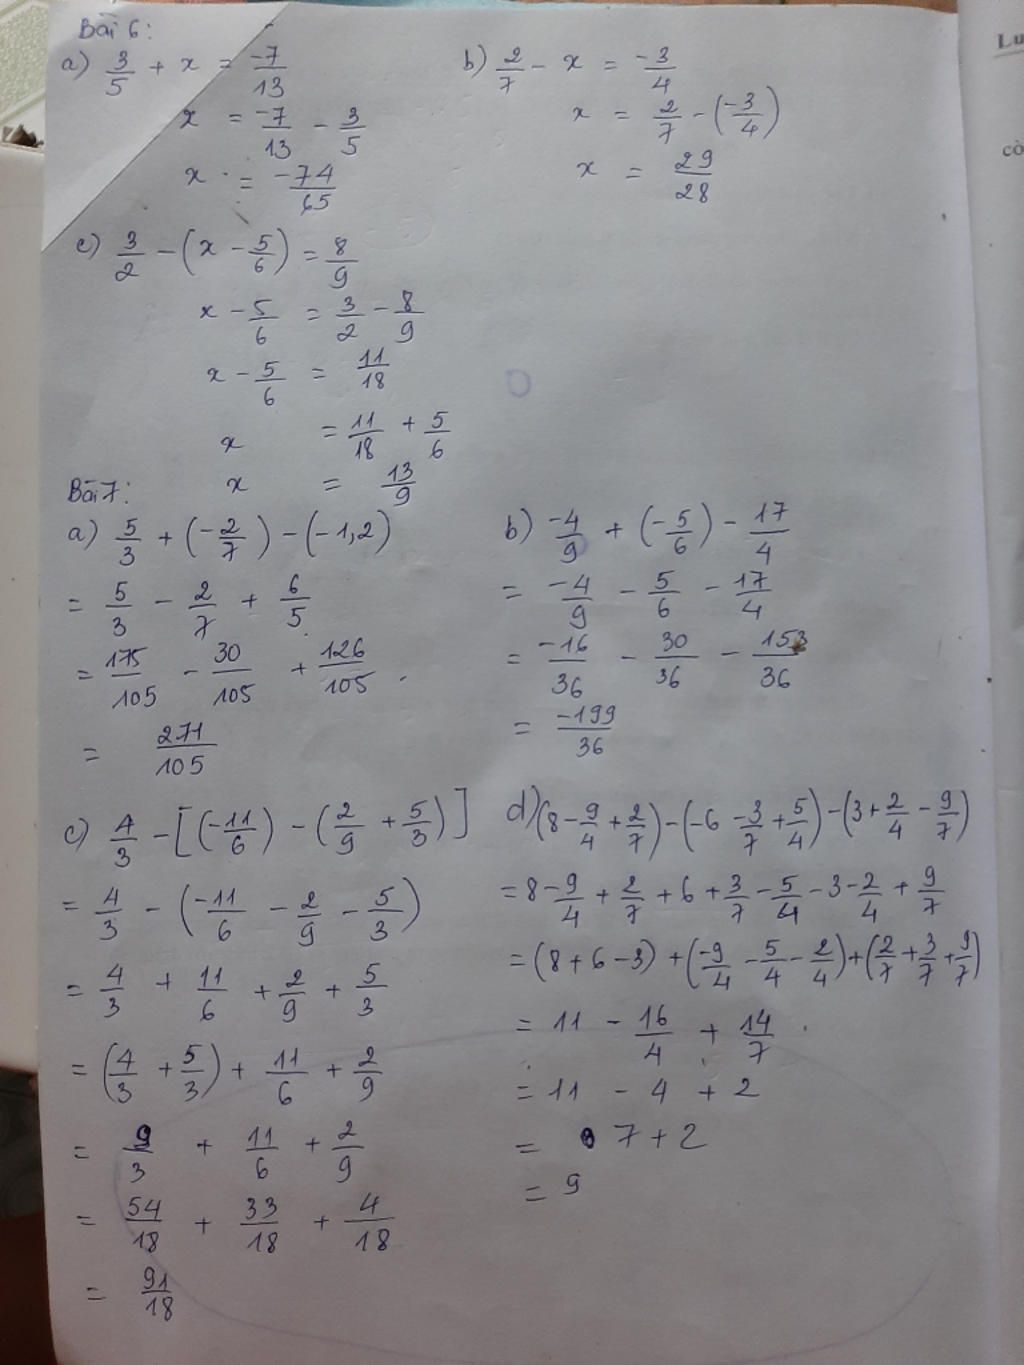 Bài 6:
a) 3/5 + x = -7/13
x = -7/13 - 3/5
x = -74/65
b) 2/7 - x = -3/4
x = 2/7 - (-3/4)
x = 29/28
c) 3/2 - (x - 5/6) = 8/9
x - 5/6 = 3/2 - 8/9
x - 5/6 = 11/18
x = 11/18 + 5/6
x = 13/9
Bài 7:
a) 5/3 + (-2/7) - (-1,2)
= 5/3 - 2/7 + 6/5
= 175/105 - 30/105 + 126/105
= 271/105
b) -4/9 + (-5/6) - 17/4
= -4/9 - 5/6 - 17/4
= -16/36 - 30/36 - 153/36
= -199/36
c) 4/3 - [(-11/6) - (2/9 + 5/3)]
= 4/3 - (-11/6 - 2/9 - 5/3)
= 4/3 + 11/6 + 2/9 + 5/3
= (4/3 + 5/3) + 11/6 + 2/9
= 9/3 + 11/6 + 2/9
= 54/18 + 33/18 + 4/18
= 91/18
d) (8 - 9/4 + 2/7) - (-6 - 3/7 + 5/4) - (3 + 2/4 - 9/7)
= 8 - 9/4 + 2/7 + 6 + 3/7 - 5/4 - 3 - 2/4 + 9/7
= (8 + 6 - 3) + (-9/4 - 5/4 - 2/4) + (2/7 + 3/7 + 9/7)
= 11 - 16/4 + 14/7
= 11 - 4 + 2
= 7 + 2
= 9
Lu
cò